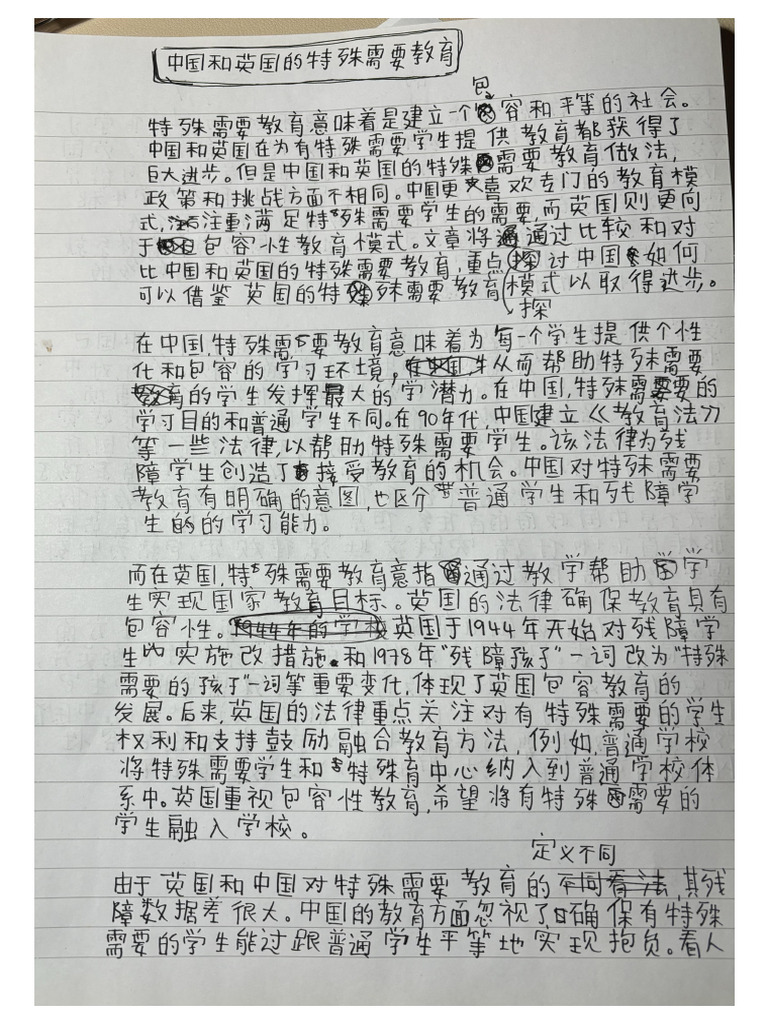 中国和英国的特殊需要教育
特殊需要教育意味着是建立一个包容和平等的社会。
中国和英国在为有特殊需要学生提供教育都获得了
巨大进步。但是中国和英国的特殊需要教育做法,
政策和挑战方面不相同。中国更喜欢专门的教育模
式,注重满足特殊需要学生的需要,而英国则更向
于包容性教育模式。文章将通过比较和对
比中国和英国的特殊需要教育,重点探讨中国如何
可以借鉴英国的特殊需要教育模式以取得进步。
探
在中国,特殊需要教育意味着为每一个学生提供个性
化和包容的学习环境,从而帮助特殊需要
教育的学生发挥最大的学潜力。在中国,特殊需要的
学习目的和普通学生不同。在90年代,中国建立《教育法》
等一些法律,以帮助特殊需要学生。该法律为残
障学生创造了接受教育的机会。中国对特殊需要
教育有明确的意图,也区分普通学生和残障学
生的的学习能力。
而在英国,特殊需要教育意指通过教学帮助学
生实现国家教育目标。英国的法律确保教育具有
包容性。英国于1944年开始对残障学
生实施改措施。和1978年“残障孩子”一词改为“特殊
需要的孩子”一词等重要变化,体现了英国包容教育的
发展。后来,英国的法律重点关注对有特殊需要的学生
权利和支持鼓励融合教育方法,例如,普通学校
将特殊需要学生和特殊育中心纳入到普通学校体
系中。英国重视包容性教育,希望将有特殊需要的
学生融入学校。
定义不同
由于英国和中国对特殊需要教育的不同看法,其残
障数据差很大。中国的教育方面忽视了确保有特殊
需要的学生能过跟普通学生平等地实现抱负。看人